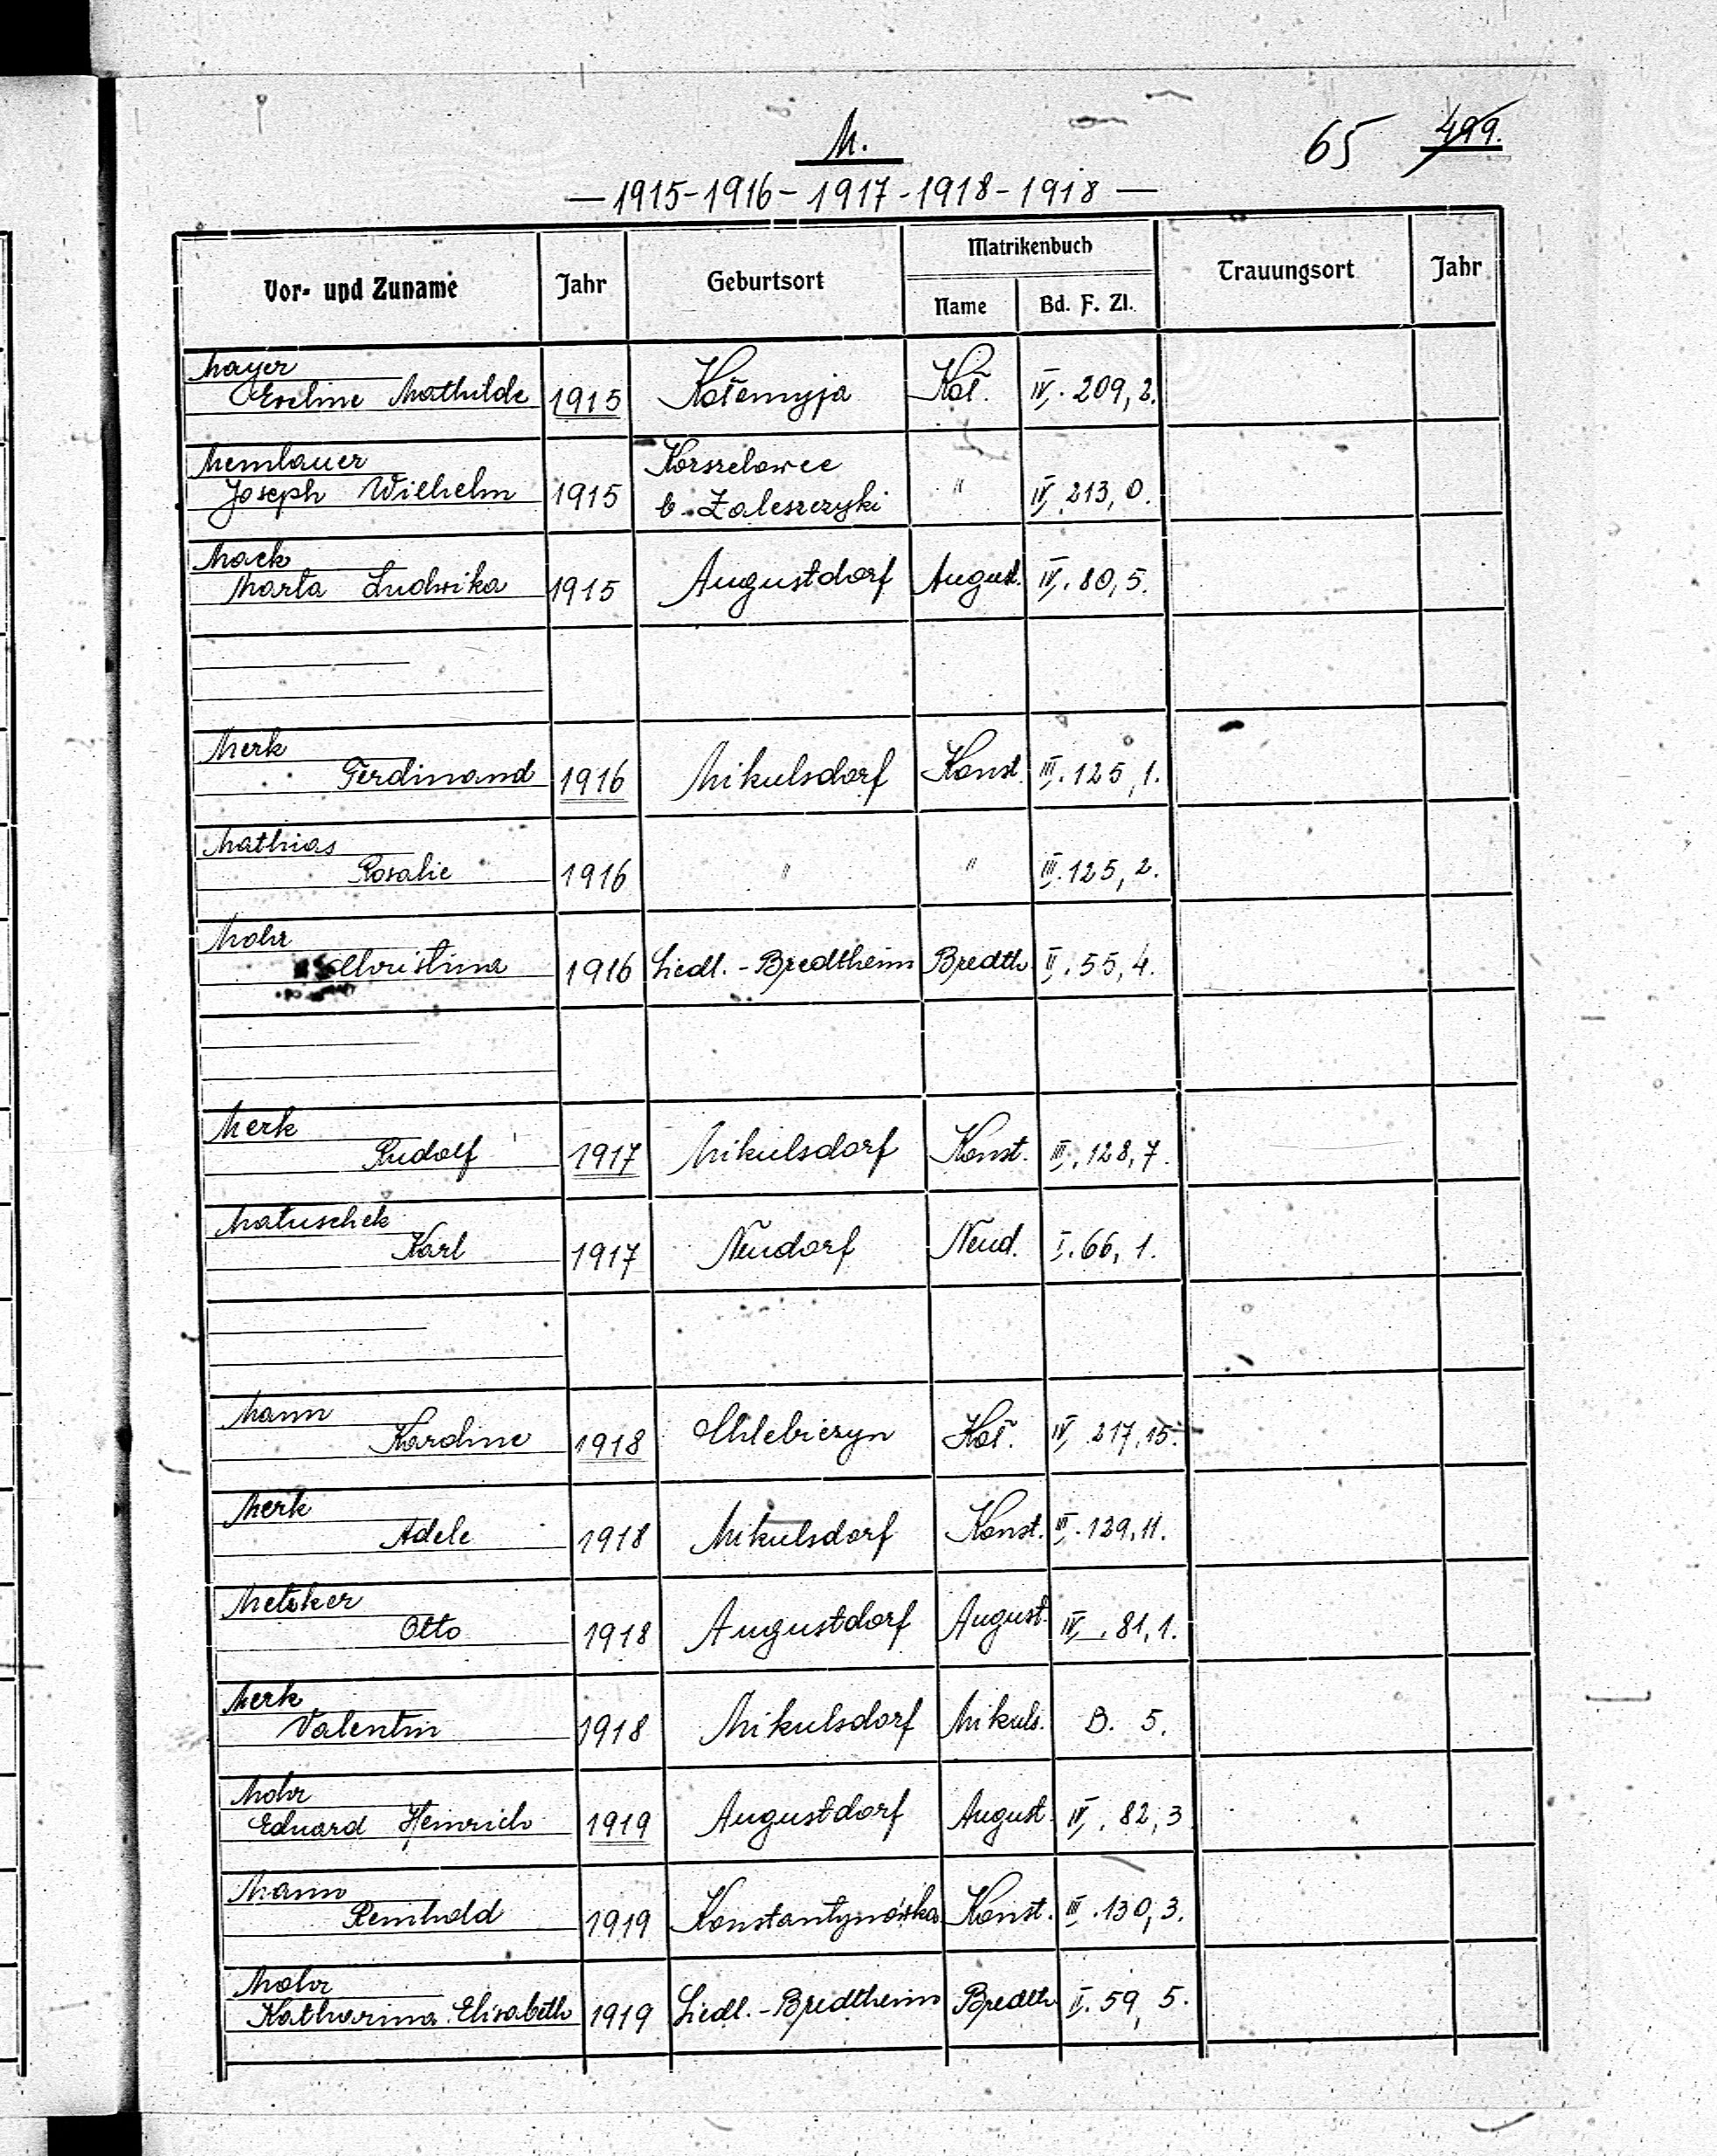 M.
65 499.
— 1915-1916-1917-1918-1918 —
Vor- und Zuname Jahr Geburtsort Matrikenbuch Trauungsort Jahr
Name Bd. F. Zl.
Mayer
Eveline Mathilde 1915 Kołomyja Koł. IV. 209, 2.
Memlauer
Joseph Wilhelm 1915 Korszelowce b. Zaleszczyki " IV, 213, 0.
Mack
Marta Ludwika 1915 Augustdorf August. IV. 80, 5.
Merk
Ferdinand 1916 Mikulsdorf Konst. III. 125, 1.
Mathias
Rosalie 1916 " " III. 125, 2.
Mohr
Christina 1916 Siedl.-Bredtheim Bredth II, 55, 4.
Merk
Rudolf 1917 Mikulsdorf Konst. III. 128, 7.
Matuschek
Karl 1917 Neudorf Neud. I. 66, 1.
Mann
Karoline 1918 Chlebiczyn Koł. IV, 217, 15.
Merk
Adele 1918 Mikulsdorf Konst. III. 129, 11.
Metzker
Otto 1918 Augustdorf August IV, 81, 1.
Merk
Valentin 1918 Mikulsdorf Mikuls. B. 5.
Mohr
Eduard Heinrich 1919 Augustdorf August. IV, 82, 3
Mann
Reinhold 1919 Konstantynówka Konst. III. 130, 3.
Mohr
Katharina Elisabeth 1919 Siedl.-Bredtheim Bredth II. 59, 5.